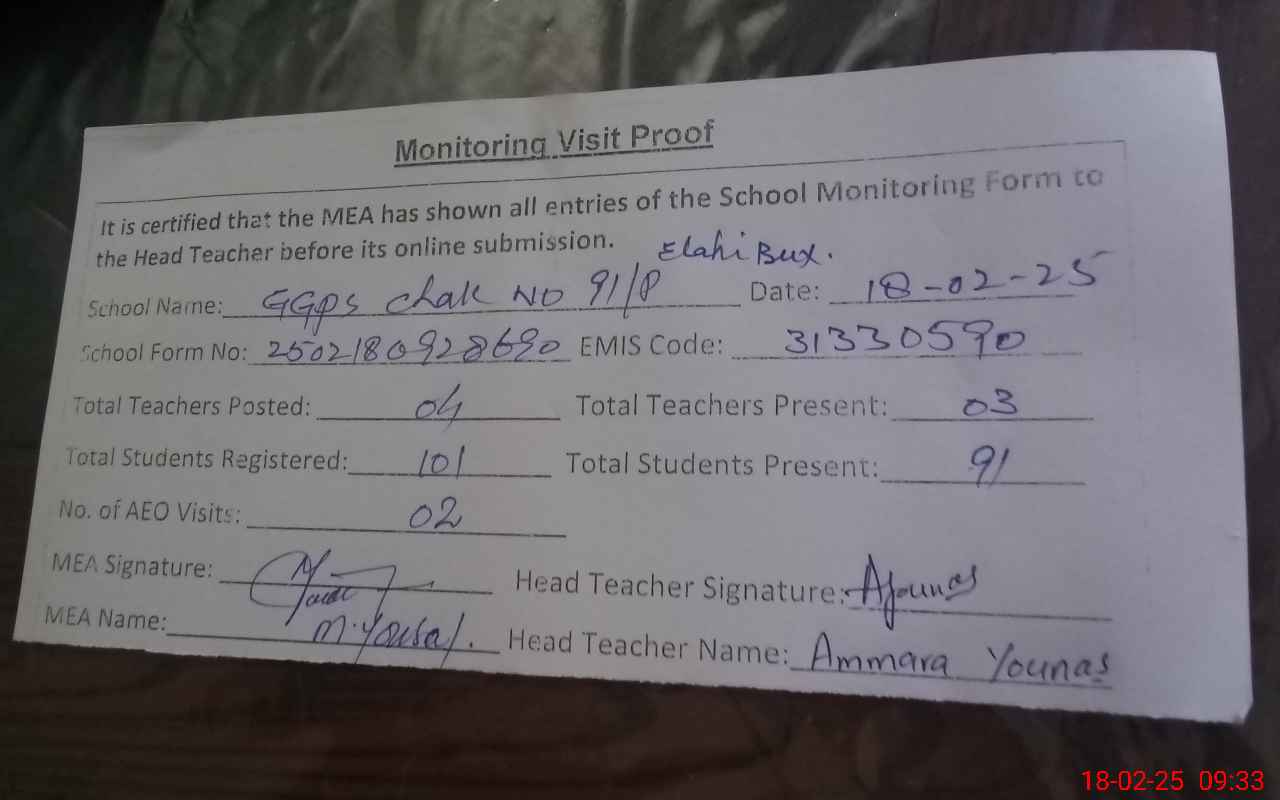 Monitoring Visit Proof
It is certified that the MEA has shown all entries of the School Monitoring Form to
the Head Teacher before its online submission.
Elahi Bux.
School Name: GGPS Chak NO 91/P Date: 18-02-25
School Form No: 2502180928690 EMIS Code: 31330590
Total Teachers Posted: 04 Total Teachers Present: 03
Total Students Registered: 101 Total Students Present: 91
No. of AEO Visits: 02
MEA Signature: Head Teacher Signature: AYounas
MEA Name: M. Yousaf. Head Teacher Name: Ammara Younas
18-02-25 09:33